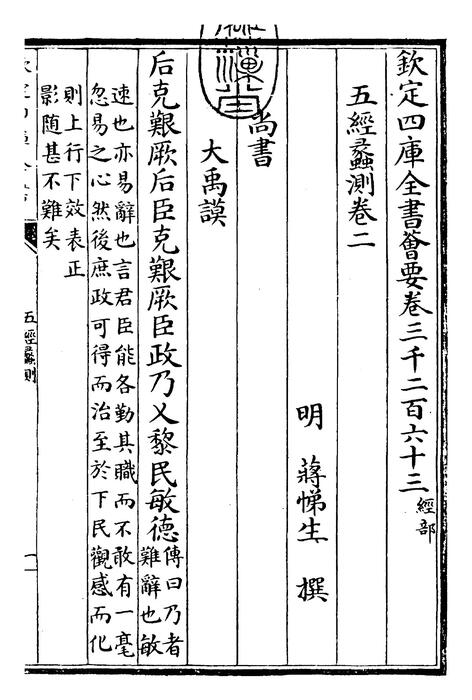 欽定四庫全書薈要卷三千二百六十三經部
五經蠡測卷二
明 蔣悌生 撰
尚書
大禹謨
后克艱厥后臣克艱厥臣政乃乂黎民敏德傳曰乃者
難辭也敏
速也亦易辭也言君臣能各勤其職而不敢有一毫
忽易之心然後庶政可得而治至於下民觀感而化
則上行下效表正
影隨甚不難矣
五經蠡測
一